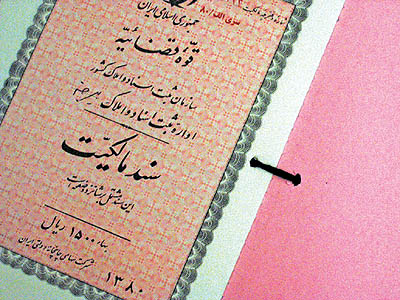 سری الف/۸۰
جمهوری اسلامی ایران
قوّه قضائیّه
سازمان ثبت اسناد و املاک کشور
اداره ثبت اسناد و املاک
سند مالکیّت
این سند مشتمل بر شانزده صفحه است
بها ۱۵۰۰ ریال
شرکت سهامی چاپخانه دولتی ایران
۱۳۸۰